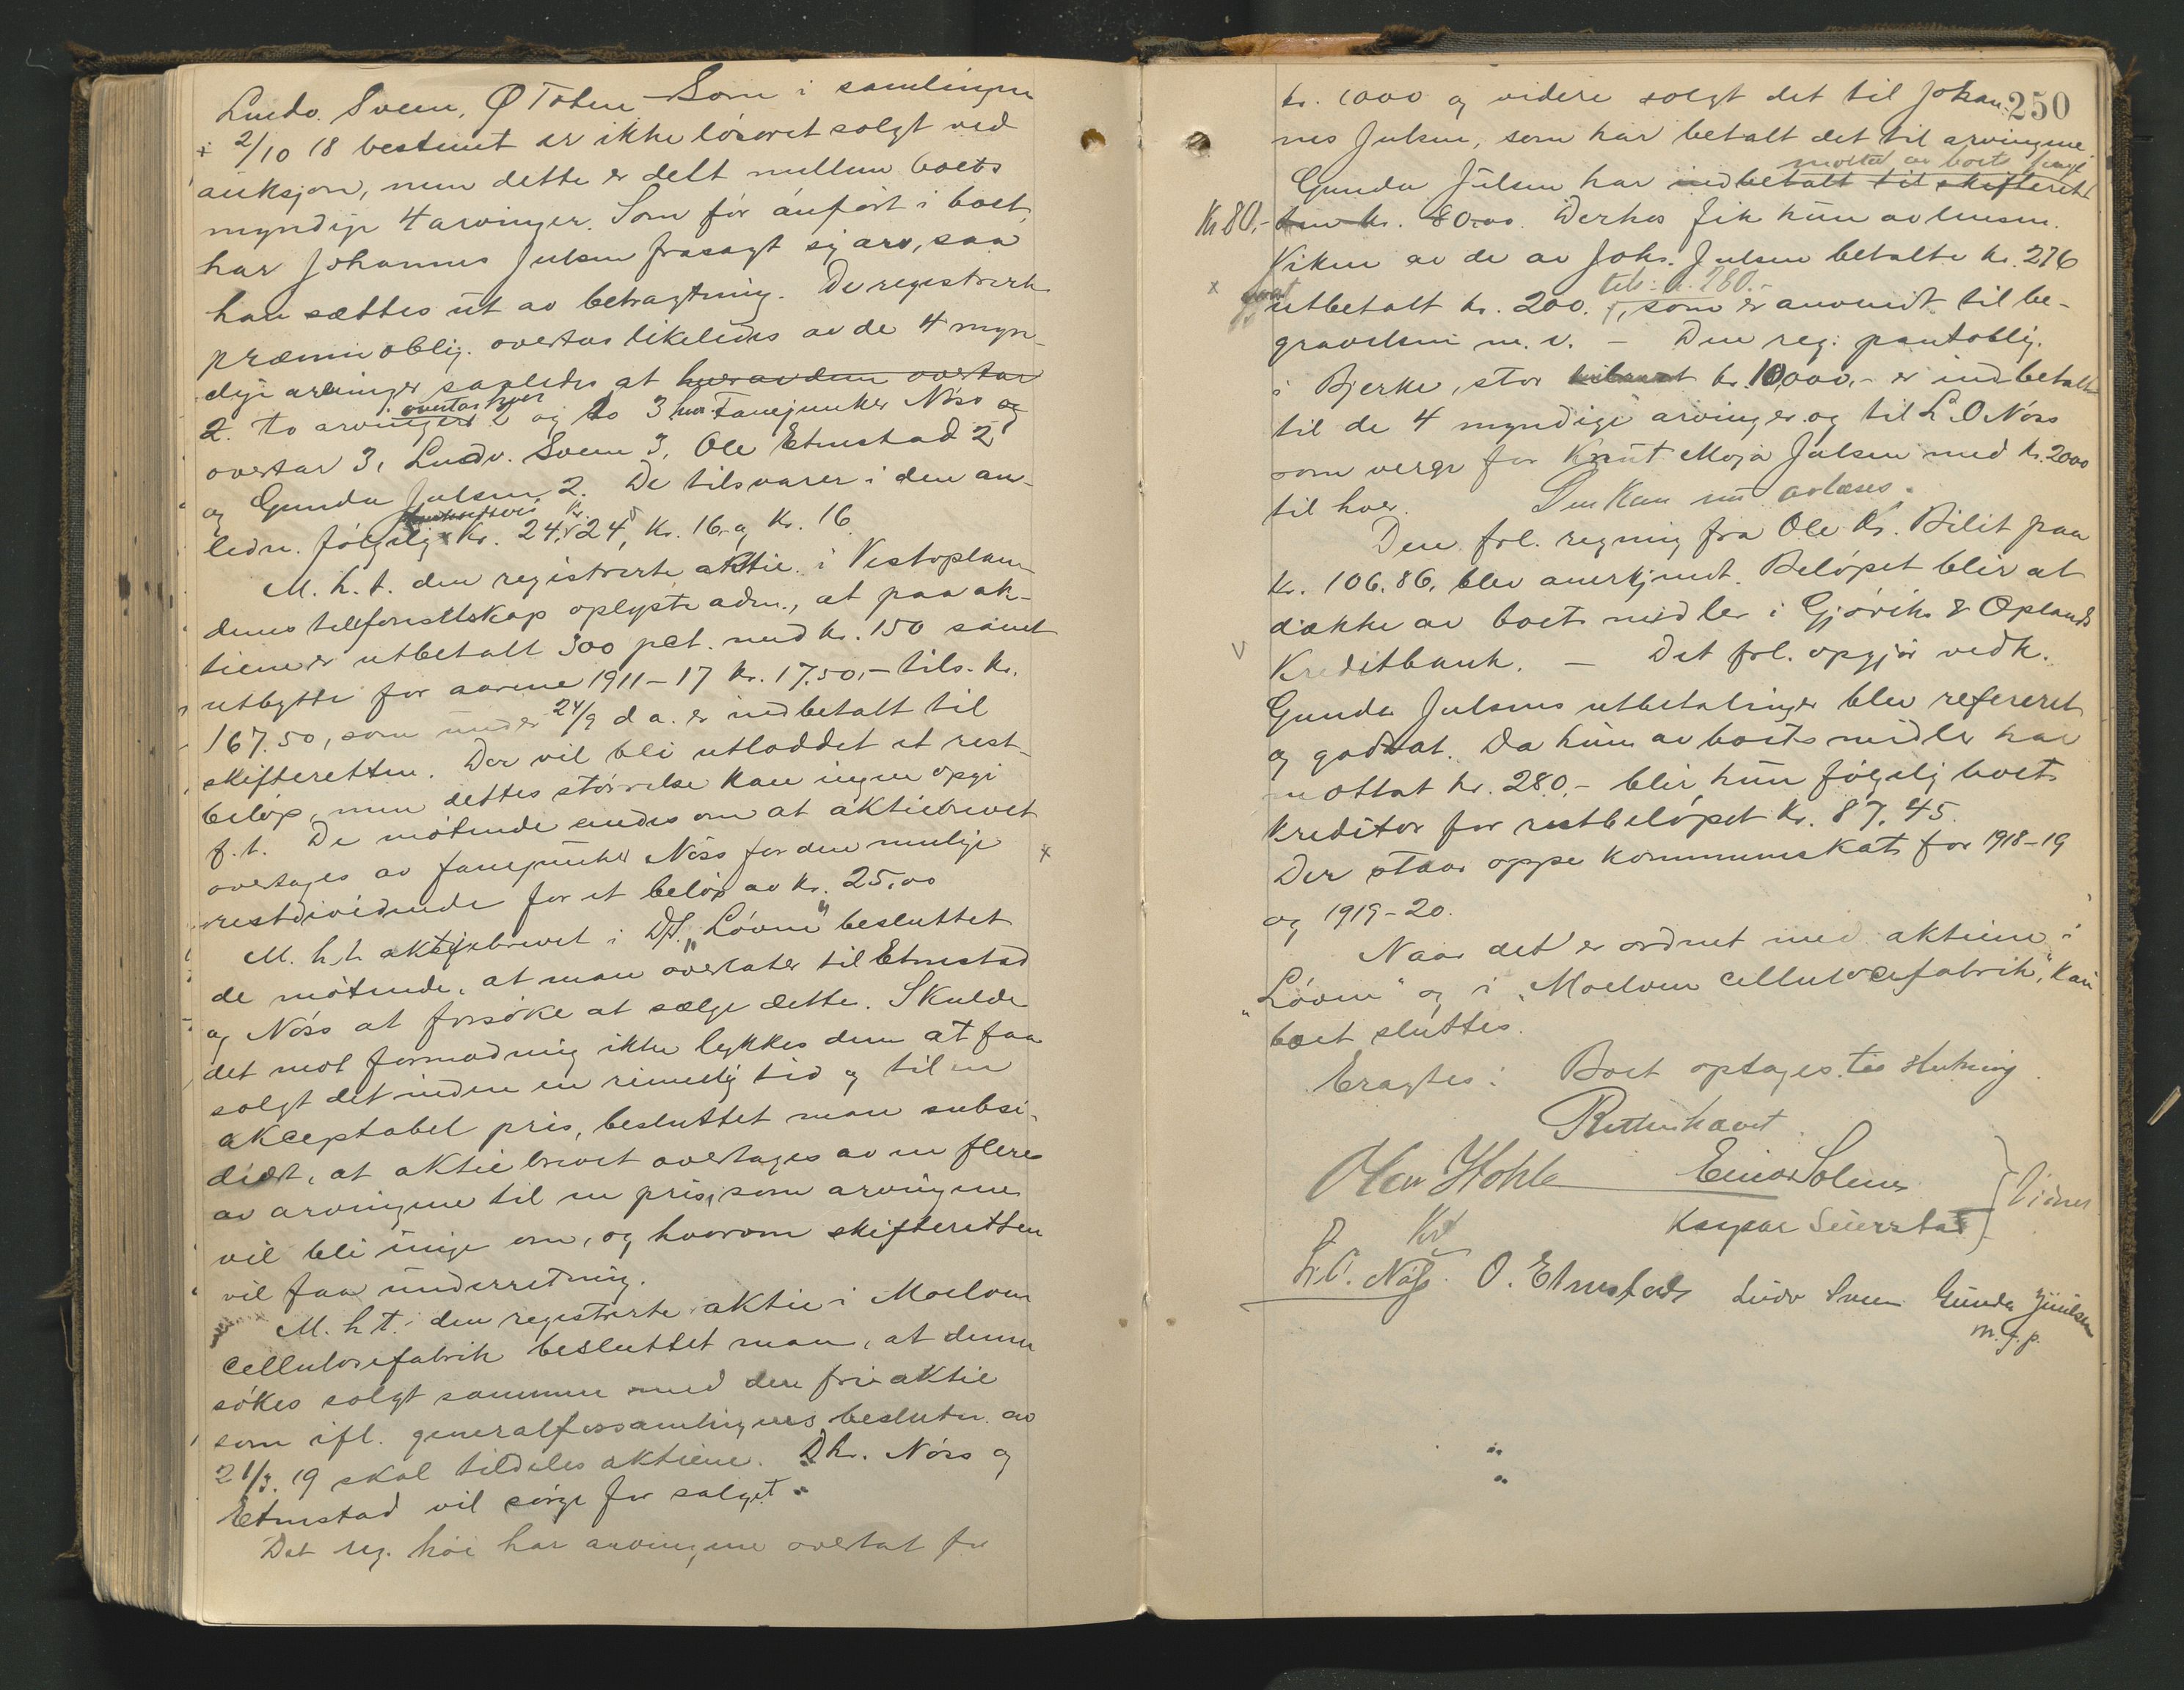 Ludv. Sveen, Ø Toten Som i samlingen
2/10 18 bestemt er ikke løsøret solgt ved
auksjon, men dette er delt mellem boets
myndige 4 arvinger. Som før anført i boet,
har Johannes Julsen frasagt sig arv, saa
han sættes ut av betragtning. De registrerte
præmieoblig. overtas likeledes av de 4 myn-
dige arvinger saaledes at hver av dem overtar
2. to arvinger overtar hver 2 og to 3 hver. Fanejunker Nöss og
overtar 3, Ludv. Sveen 3, Ole Etnestad 2
og Gunda Julsen 2. De tilsvarer i den an-
ledn. følgelig Kr. 24, Kr. 24, Kr. 16 og Kr. 16
M. h. t. den registrerte aktie i Vestoplan-
denes telefonselskap oplyste adm., at paa ak-
tiene er utbetalt 300 pct. med kr. 150 samt
utbytte for aarene 1911-17 kr. 17.50,- tils. kr.
167.50, som under 24/9 d a. er indbetalt til
skifteretten. Der vil bli utloddet et rest-
beløp, men dettes størrelse kan ingen opgi
f. t. De møtende enedes om at aktiebrevet
overtages av fanejunker Nöss for den mulige
restdividende for et beløp av kr. 25,00
M. h. t. aktiebrevet i D/S. "Løven" besluttet
de møtende, at man overlater til Etnestad
og Nöss at forsøke at sælge dette. Skulde
det mot formodning ikke lykkes dem at faa
solgt det inden en rimelig tid og til en
akceptabel pris, besluttet man subsi-
diært, at aktiebrevet overtages av en flere
av arvingene til en pris, som arvingene
vil bli enige om, og hvorom skifteretten
vil faa underretning.
M. h. t. den registrerte aktie i Moelven
cellulosefabrik besluttet man, at denne
søkes solgt sammen med den fri aktie
som ifl. generalforsamlingens beslutn. av
21/3. 19 skal tildeles aktiene. Dhr. Nöss og
Etnestad vil sørge for salget.
Det reg. høi har arvingene overtat for
250
kr. 1000 og videre solgt det til Johan-
nes Julsen, som har betalt det til arvingene
mottat av boets penge
Gunda Julsen har indbetalt til skifteret
Kr 80,- ten kr. 80.00. Derhos fik hun av lensm.
Viken av de av Johs. Julsen betalte kr. 276
utbetalt kr. 200. tils: kr. 280.-, som er anvendt til be-
gravelsen m. v. - Den reg. pantoblig.
i Bjerke, stor kr. 10,000,- er indbetalt
til de 4 myndige arvinger og til L. O Nöss
som verge for Knut Moja Julsen med kr. 2000
til hver. Den kan nu avlæses.
Den frl. regning fra Ole Kr. Bilit paa
kr. 106.86, blev anerkjendt. Beløpet blir at
dække av boets midler i Gjøvik & Oplands
Kreditbank. - Det frl. opgjør vedk.
Gunda Julsens utbetalinger blev refereret
og godtat. Da hun av boets midler har
mottat kr. 280,- blir hun følgelig boets
kreditor for restbeløpet kr. 87,45.
Der staar oppe kommuneskat for 1918-19
og 1919-20.
Naar det er ordnet med aktiene i
"Løven" og i "Moelven cellulosefabrik", kan
boet sluttes.
Eragtes: Boet optages til slutning.
Retten hævet.
Einar Solem
Kaspar Seierstad } Vidner
L. O. Nöss. O. Etnestad Ludv Sveen Gunda Juulsen
m. f. p.